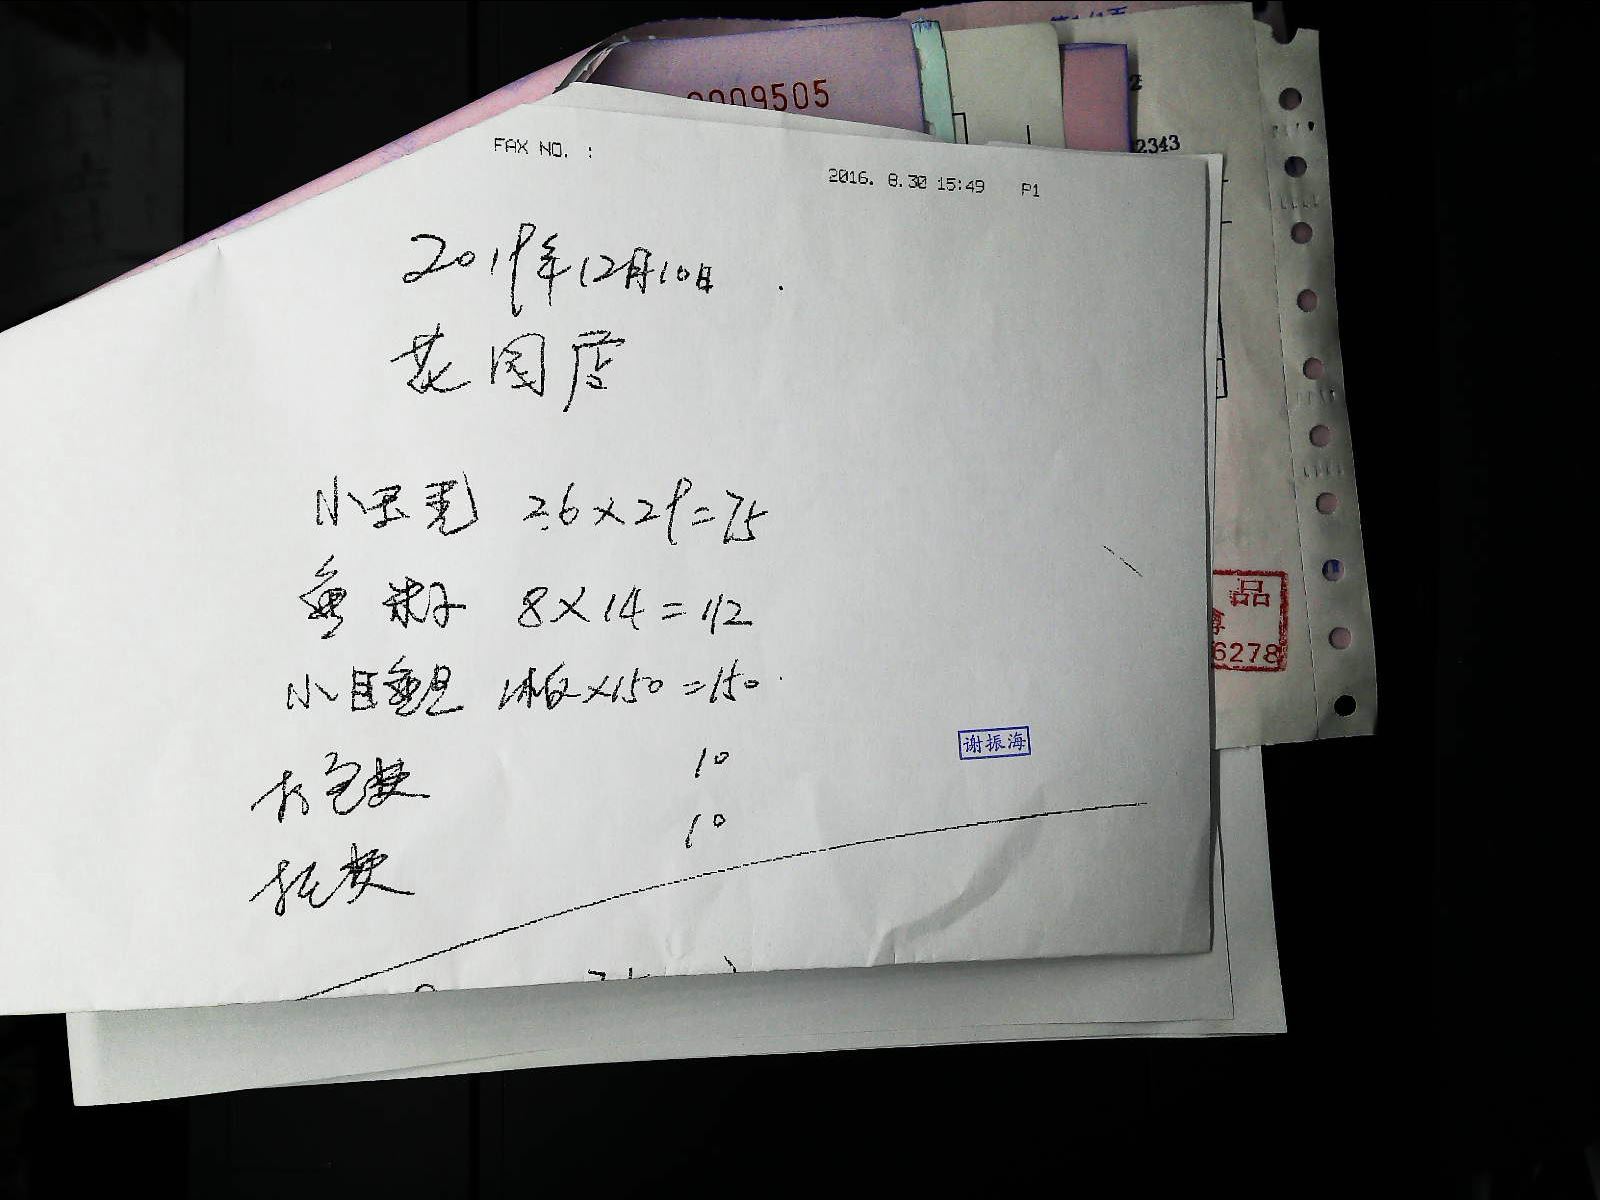 0009505
2343
FAX NO. :
2016. 8.30 15:49 P1
2019年12月10日
花园店
小玉壳 2.6×29=75
鱼籽 8×14=112
小目鱼 1板×150=150
打包费 10
托费 10
谢振海
品
6278